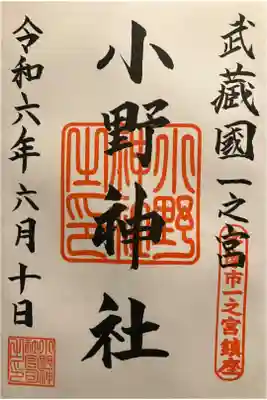 武藏國一之宮
市一之宮鎮座
小野神社
令和六年六月十日